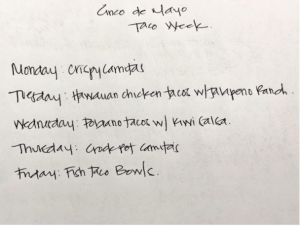 Cinco de Mayo
Taco Week.
Monday: Crispy Carnitas
Tuesday: Hawaiian chicken tacos w/ Jalapeno Ranch.
Wednesday: Poblano tacos w/ Kiwi Salsa.
Thursday: Crockpot Carnitas
Friday: Fish Taco Bowls.